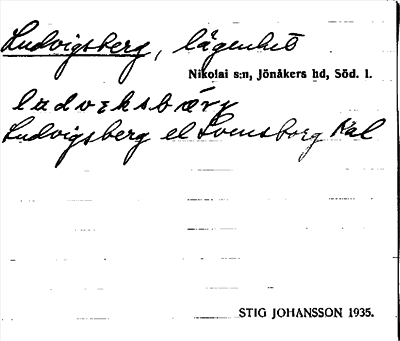 Ludvigsberg, lägenhet
Nikolai s:n, Jönåkers hd, Söd. l.
Ludvigsberg el Svensborg Kal
STIG JOHANSSON 1935.